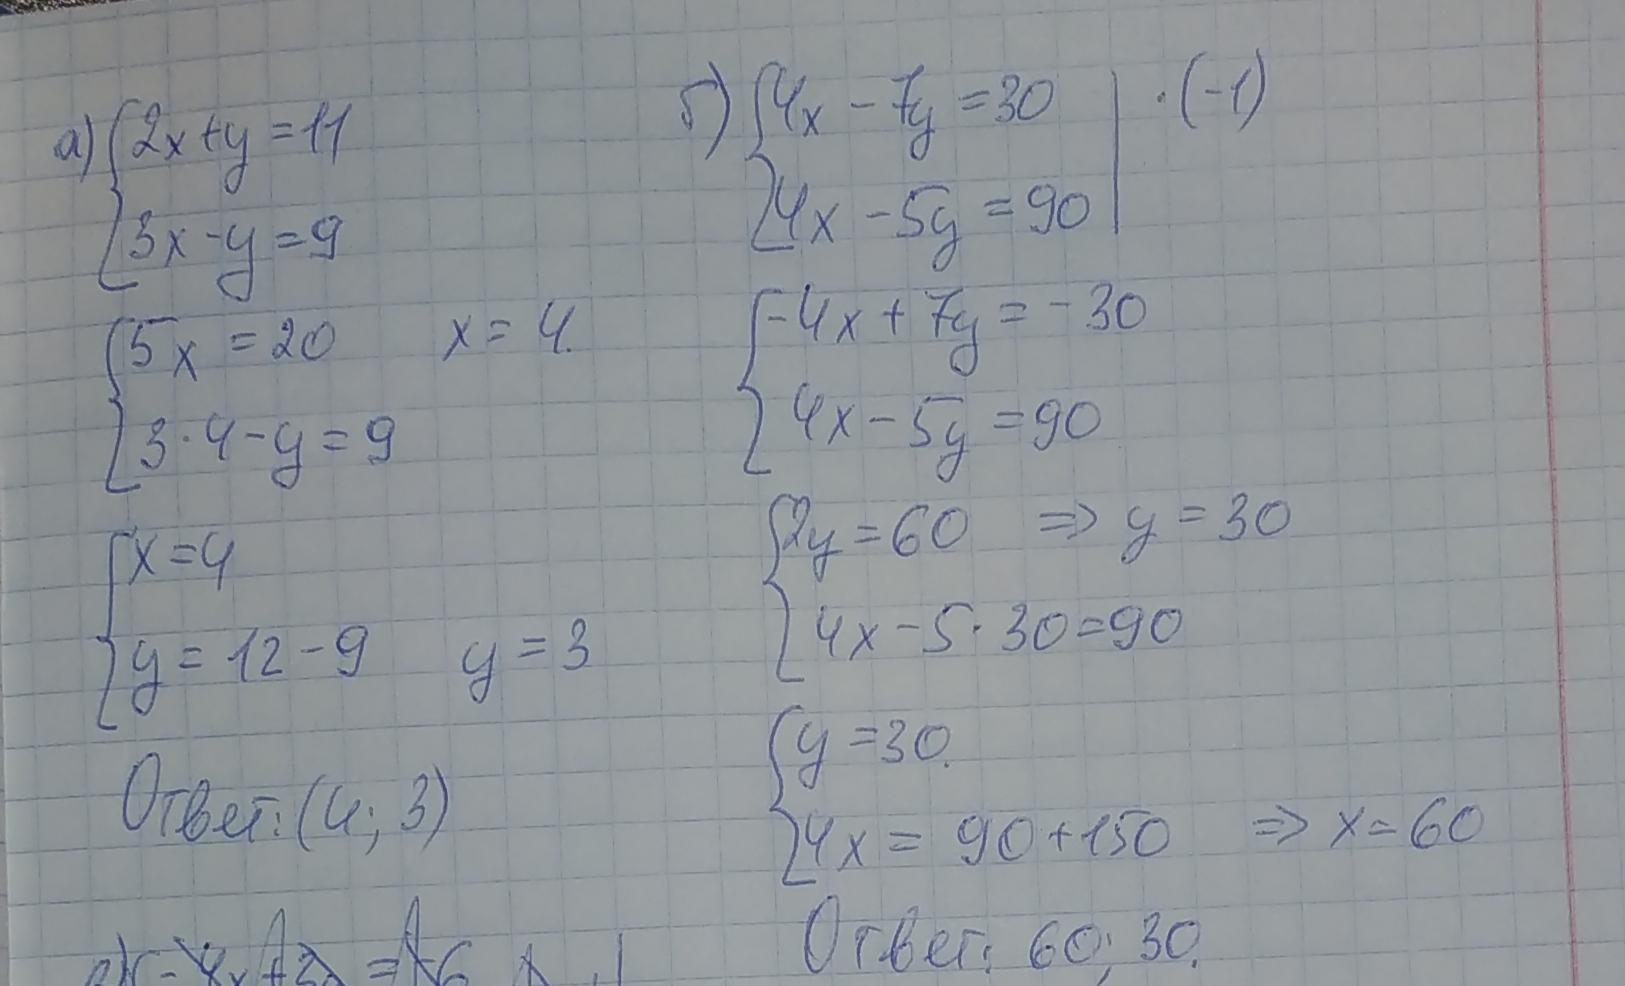 а) { 2x+y=11
3x-y=9
{ 5x=20 x=4.
3·4-y=9
{ x=4
y=12-9 y=3
Ответ: (4; 3)
б) { 4x-7y=30 | ·(-1)
4x-5y=90
{ -4x+7y=-30
4x-5y=90
{ 2y=60 => y=30
4x-5·30=90
{ y=30.
4x=90+150 => x=60
Ответ: 60; 30.